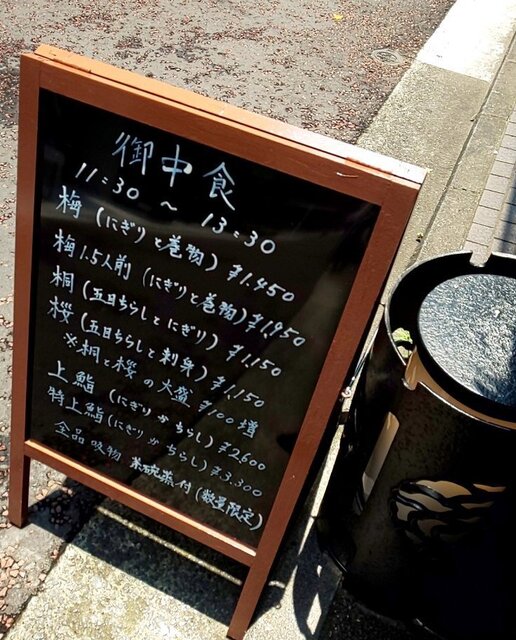 御中食
11:30 ～ 13:30
梅 (にぎりと巻物) ¥1.450
梅1.5人前 (にぎりと巻物) ¥1.950
桐 (五目ちらしとにぎり) ¥1.150
桜 (五目ちらしと刺身) ¥1.150
※桐と桜の大盛 ¥100増
上鮨 (にぎりかちらし) ¥2.600
特上鮨 (にぎりかちらし) ¥3.300
全品吸物 茶碗蒸付 (数量限定)